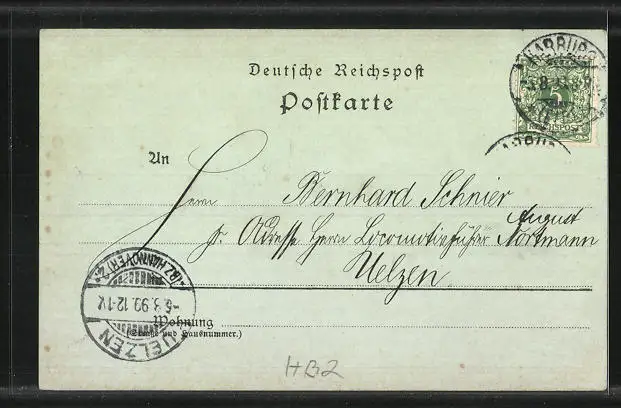 Deutsche Reichspost
Postkarte
HARBURG
5
An
Herrn Bernhard Schnier
August
p. Adresse Herrn Locomotivführer Nortmann
Uelzen.
(BZ. HANNOVER)
-5.8.99.12-1V.
UELZEN
Wohnung
(Straße und Hausnummer.)
HB2